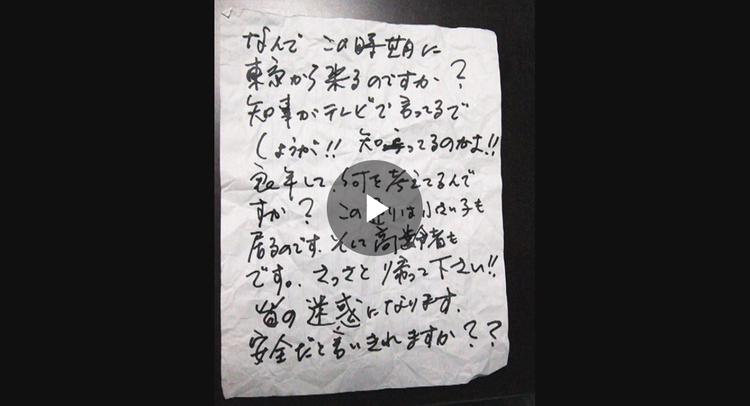 なんで この時期に
東京から来るのですか？
知事がテレビで言ってるで
しょうが!! 知ってるのかよ!!
良い年して、何を考えてるんで
すか？ この辺りは小さい子も
居るのです。そして高齢者も
です。さっさと帰って下さい!!
皆の迷惑になります。
安全だと言いきれますか？？